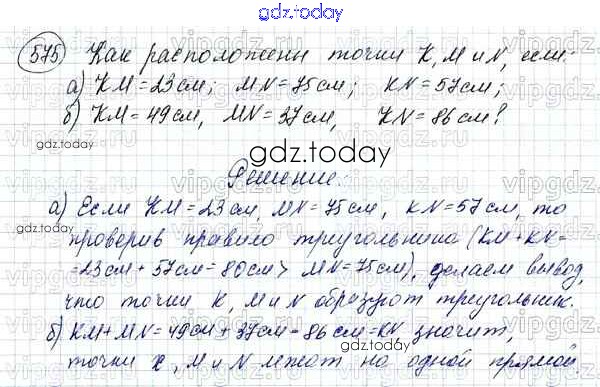 gdz.today
575 Как расположены точки K, M и N, если:
а) KM = 23 см; MN = 75 см; KN = 57 см;
б) KM = 49 см, MN = 37 см, KN = 86 см?
gdz.today
gdz.today
Решение:
а) Если KM = 23 см, MN = 75 см, KN = 57 см, то
gdz.today
проверив правило треугольника (KM + KN =
= 23 см + 57 см = 80 см > MN = 75 см), делаем вывод,
что точки K, M и N образуют треугольник.
б) KM + MN = 49 см + 37 см = 86 см = KN значит,
точки K, M и N лежат на одной прямой.
gdz.today
gdz.today